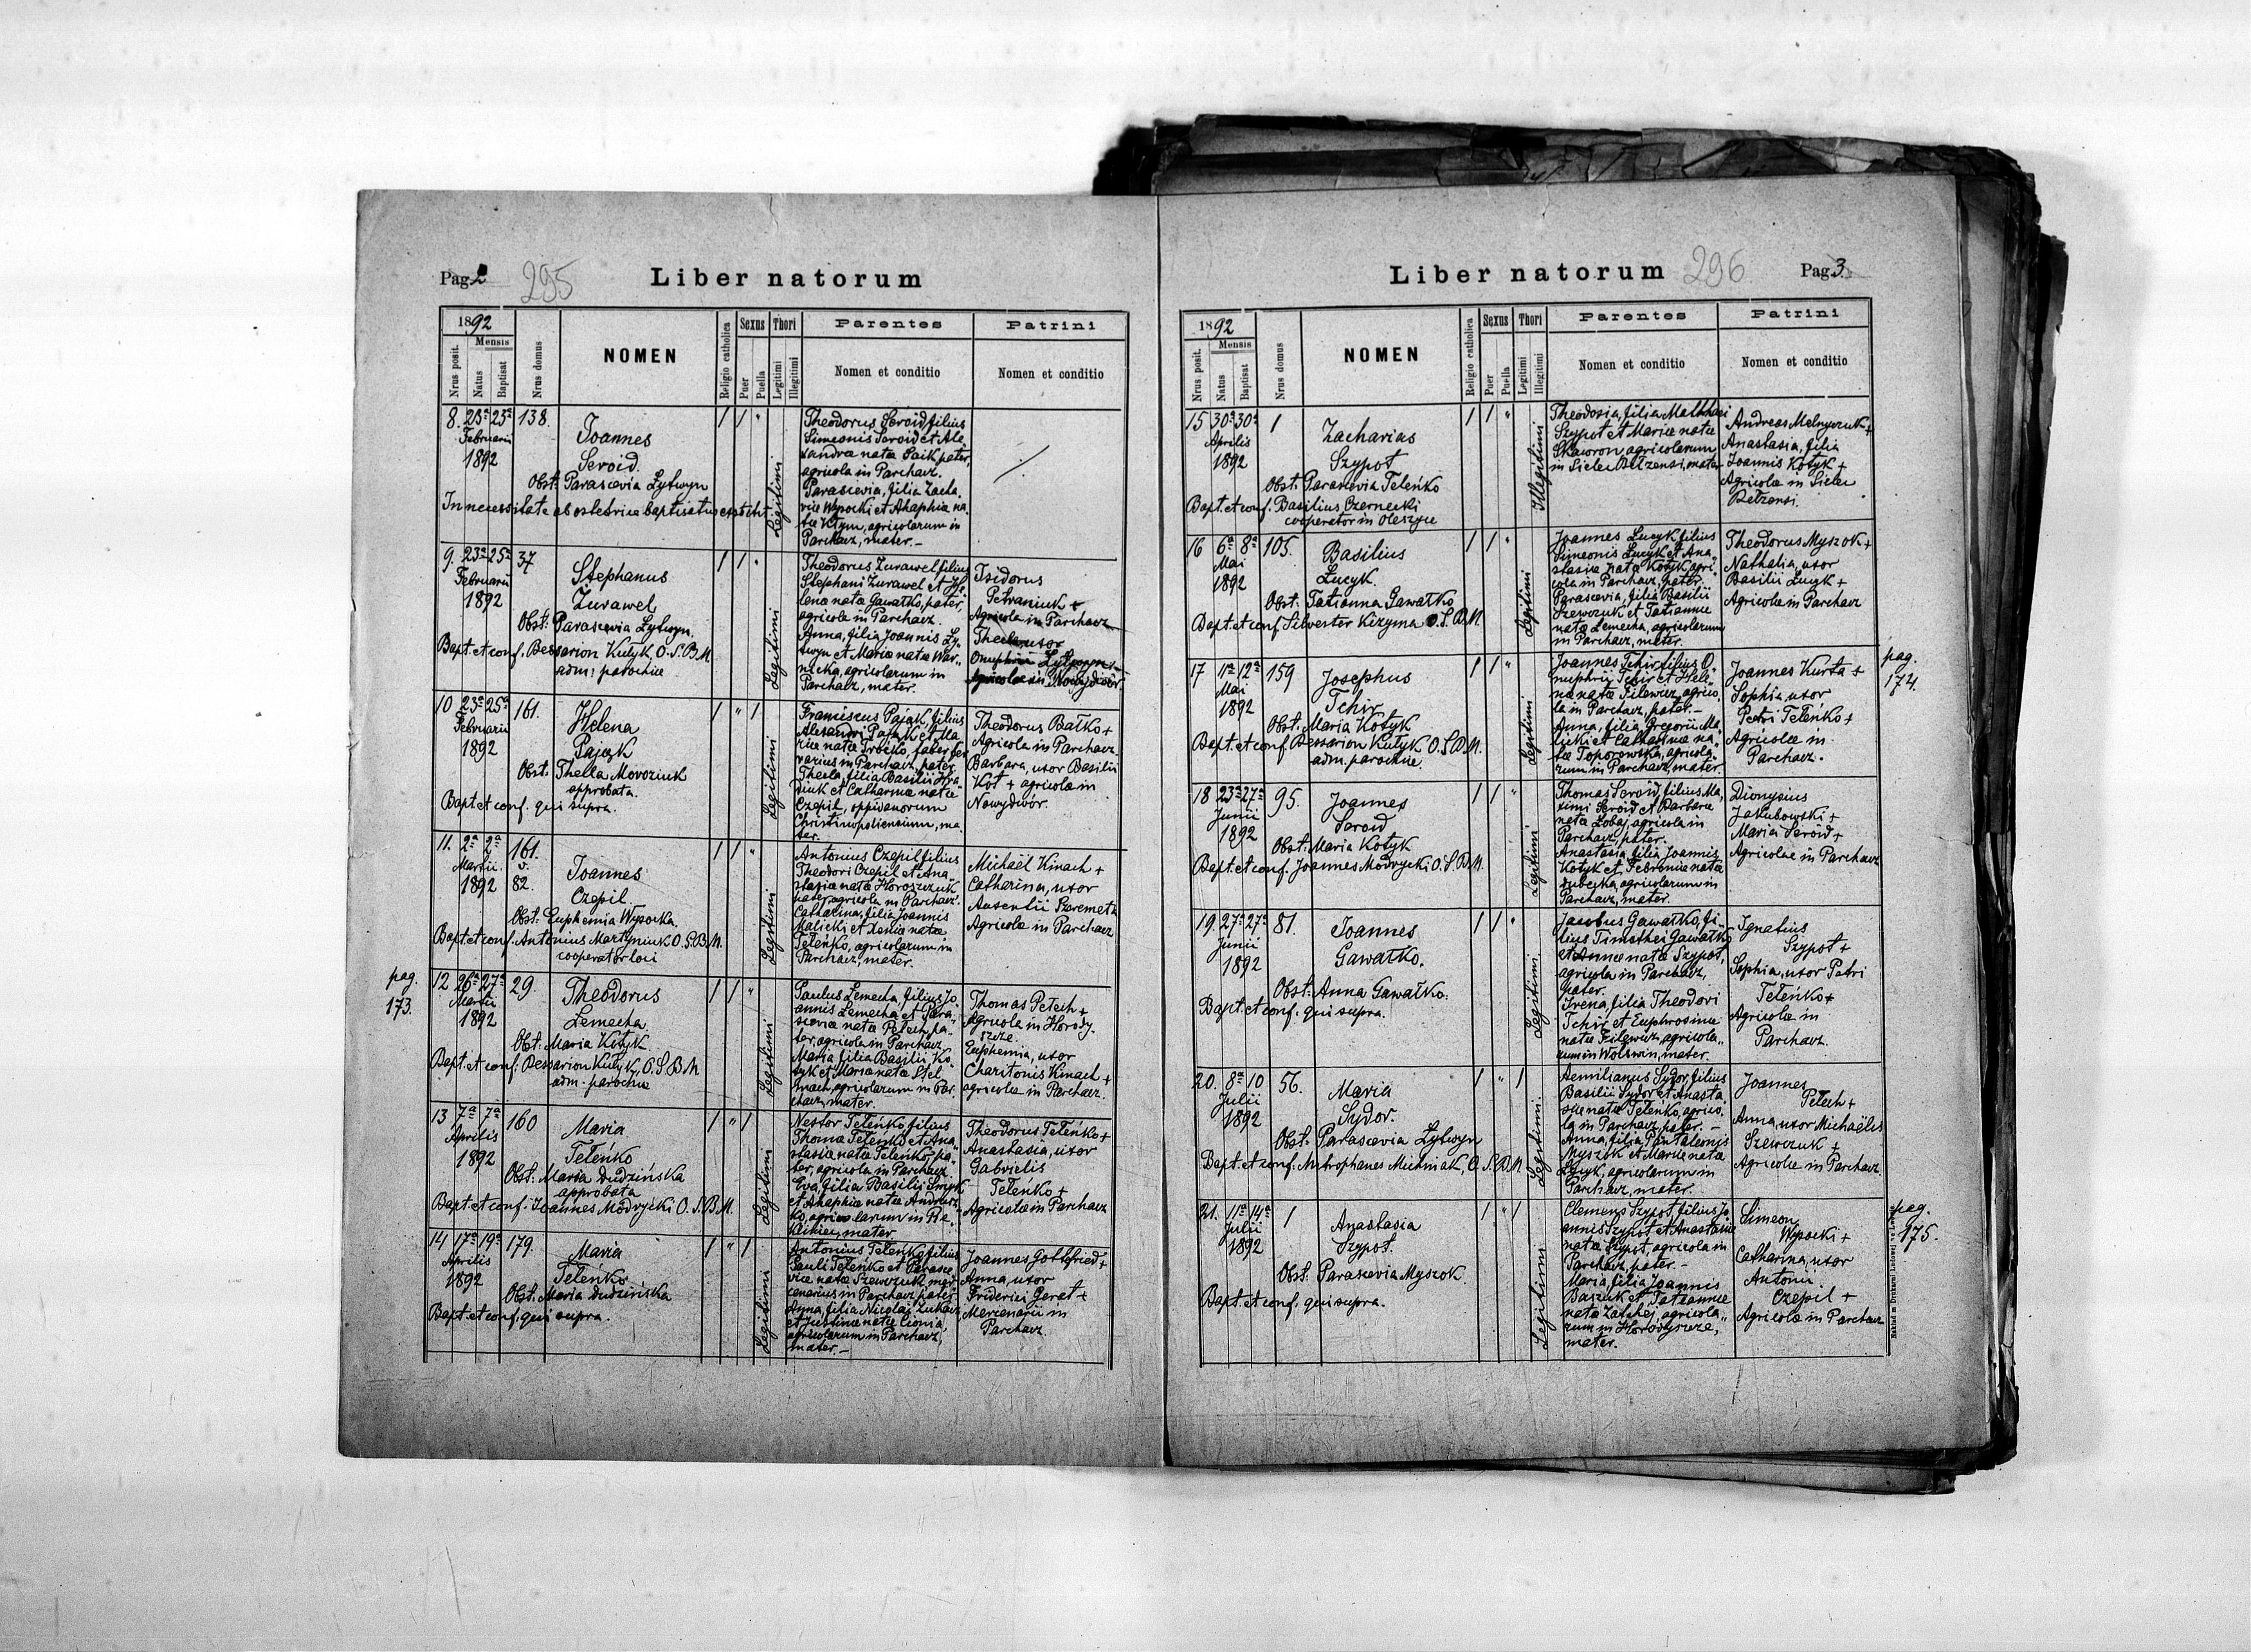 Pag. 2
295
Liber natorum
1892
Mensis
Nrus posit.
Natus
Baptisat
Nrus domus
NOMEN
Religio catholica
Sexus
Puer
Puella
Thori
Legitimi
Illegitimi
Parentes
Nomen et conditio
Patrini
Nomen et conditio
8. 23ª 23ª 138.
Februarii
1892
Joannes
Seroid.
Obst. Parascevia Lytwyn
In necessitate ab obstetrice baptisatus
Legitimi
Theodorus Seroid filius
Simeonis Seroid et Ale
xandra nata Paik, pater,
agricola in Parchacz.
Parascevia, filia Zacha.
riæ Wysocki et Ahaphiæ na
tæ Kłym, agricolarum in
Parchacz, mater.-
9. 23ª 25ª 37
Februarii
1892
Stephanus
Zurawel
Obst: Parascevia Lytwyn.
Bapt. et conf. Bessarion Kułyk O.S.B.M.
adm: parochiæ
Legitimi
Theodorus Zurawel filius
Stephani Zurawel et He
lena nata Gawałko, pater,
agricola in Parchacz.
Anna, filia Joannis Ly
twyn et Mariæ natæ War„
nicka, agricolarum in
Parchacz, mater.
Isidorus
Petraniuk +
Agricola in Parchacz
Thecla, uxor
Onuphrii Lytwyn
Agricolæ in Nowydwór.
10 23ª 25ª 161.
Februarii
1892
Helena
Pająk
Obst. Thella Movoziuk
approbata.
Bapt. et conf. qui supra.
Legitimi
Franciscus Pająk, filius
Alexandri Pająk et Ma
riæ natæ Trocko, faber fer
rarius in Parchacz, pater.
Thecla, filia Basilii Hra
diuk et Catharinæ natæ
Czepil, oppidanorum
Christinopoliensium, ma
ter.
Theodorus Bałko +
Agricola in Parchacz
Barbara, uxor Basilii
Kot + agricolæ in
Nowydwór.
11. 2ª 2ª 161.
Martii
1892 82.
Joannes
Czepil.
Obst: Euphemia Wysocka.
Bapt. et conf. Antonius Martyniuk O.S.B.M.
cooperator loci
Legitimi
Antonius Czepil filius
Theodori Czepil et Ana„
stasiæ natæ Horoszczuk
pater, agricola in Parchacz.
Catharina, filia Joannis
Malicki et Xeniæ natæ
Teleńko, agricolarum in
Parchacz, mater.
Michaël Kinach +
Catharina, uxor
Auxentii Szeremeta
Agricolæ in Parchacz
pag.
173.
12 26ª 27ª 29
Martii
1892
Theodorus
Lemecha
Obst: Maria Kotyk
Bapt. et conf. Bessarion Kułyk, O.S.B.M
adm. parochiæ
Legitimi
Paulus Lemecha, filius Jo
annis Lemecha et Para„
sceviæ natæ Petech, pa„
ter, agricola in Parchacz
Maria filia Basilii Ko
tyk et Mariæ natæ Stel
mach, agricolarum in Par.
chacz, mater.
Thomas Petech +
Agricola in Horody.
szcze.
Euphemia, uxor
Charitonis Kinach +
agricola in Parchacz.
13 7ª 7ª 160
Aprilis
1892
Maria
Teleńko
Obst: Maria Dudzińska
approbata
Bapt. et conf. Joannes Modrycki O.S.B.M.
Legitimi
Nestor Teleńko, filius
Thoma Teleńko et Ana„
stasiæ natæ Teleńko, pa„
ter, agricola in Parchacz
Eva, filia Basilii Smyk
et Ahaphiæ natæ Andrusz
ko, agricolarum in
mater
Theodorus Teleńko +
Anastasia, uxor
Gabrielis
Teleńko +
Agricolæ in Parchacz
14 17ª 19ª 179.
Aprilis
1892
Maria
Teleńko
Obst. Maria Dudzińska
Bapt. et conf. qui supra.
Legitimi
Antonius Teleńko, filius
Pauli Teleńko et Parasce
viæ natæ Szewczuk, mer
cenarius in Parchacz, pater
Anna, filia Nicolai Zukacz
et Justinæ natæ Cionia,
agricolarum in Parchacz,
mater.-
Joannes Gottfried +
Anna, uxor
Friderici Gerat +
Mercenarii in
Parchacz.
Liber natorum
296
Pag. 3
1892
Mensis
Nrus posit.
Natus
Baptisat
Nrus domus
NOMEN
Religio catholica
Sexus
Puer
Puella
Thori
Legitimi
Illegitimi
Parentes
Nomen et conditio
Patrini
Nomen et conditio
15 30ª 30ª 1
Aprilis
1892
Zacharias
Szypot
Obst. Parascevia Teleńko
Bapt. et conf. Basilius Czernecki
cooperator in Oleszyce
Illegitimi
Theodosia, filia Matthæi
Szypot et Mariæ natæ
Skaworon agricolarum
in Sielec Bełzensi, mater
Andreas Melnyczuk +
Anastasia, filia
Joannis Kotyk +
Agricolæ in Sielec
Bełzensi.
16 6ª 8ª 105.
Mai
1892
Basilius
Lucyk.
Obst: Tatianna Gawałko
Bapt. et conf. Silvester Kizyma O.S.B.M.
Legitimi
Joannes Lucyk, filius
Simeonis Lucyk et Ana„
stasiæ natæ Kotyk, agri„
cola in Parchacz, pater.
Parascevia, filia Basilii
Szewczuk et Tatiannæ
natæ Lemecha, agricolarum
in Parchacz, mater.
Theodorus Myszok +
Nathalia, uxor
Basilii Lucyk +
Agricolæ in Parchacz
pag.
174.
17 11ª 12ª 159
Mai
1892
Josephus
Tchir
Obst. Maria Kotyk
Bapt. et conf. Bessarion Kułyk O.S.B.M.
adm. parochiæ.
Legitimi
Joannes Tchir, filius O„
nuphrii Tchir et Hele
næ natæ Filewicz, agrico„
la in Parchacz, pater.-
Anna, filia Gregorii Ma„
licki et Catharinæ na„
tæ Toporowska, agricola„
rum in Parchacz, mater.
Joannes Kurta +
Sophia, uxor
Petri Teleńko +
Agricolæ in
Parchacz.
18 23ª 27ª 95.
Junii
1892
Joannes
Seroid
Obst: Maria Kotyk
Bapt. et conf. Joannes Modrycki O.S.B.M.
Legitimi
Thomas Seroid, filius Ma„
ximi Seroid et Barbaræ
natæ Łobaj, agricola in
Parchacz, pater.
Anastasia, filia Joannis
Kotyk et Febroniæ natæ
agricolarum in
Parchacz, mater.
Dionysius
Jakubowski +
Maria Seroid +
Agricolae in Parchacz
19. 27ª 27ª 81.
Junii
1892
Joannes
Gawałko.
Obst: Anna Gawałko.
Bapt. et conf. qui supra.
Legitimi
Jacobus Gawałko, fi„
lius Timothei Gawałko
et Annæ natæ Szypot,
agricola in Parchacz,
pater.
Irena, filia Theodori
Tchir et Euphrosinæ
natæ Filewicz, agricola„
rum in Wolswin, mater.
Ignatius
Szypot +
Sophia, uxor Petri
Teleńko +
Agricolæ in
Parchacz.
20. 8ª 10 56.
Julii
1892
Maria
Sydor.
Obst: Parascevia Lytwyn
Bapt. et conf. Mitrophanes Michniak, O.S.B.M
Legitimi.
Aemilianus Sydor, filius
Basilii Sydor et Anasta
siæ natæ Teleńko, agrico„
la in Parchacz, pater.-
Anna, filia Pantaleonis
Myszok et Mariæ natæ
Lucyk, agricolarum in
Parchacz, mater.
Joannes
Petech +
Anna, uxor Michaëlis
Szewczuk +
Agricolæ in Parchacz.
21. 11ª 14ª 1
Julii
1892
Anastasia
Szypot.
Obst: Parascevia Myszok.
Bapt. et conf. qui supra.
Legitimi
Clemens Szypot, filius Jo
annis Szypot et Anastasiæ
natæ Szypot, agricola in
Parchacz, pater.-
Maria, filia Joannis
Baszuk et Tatiannæ
natæ Zatchej, agricola„
rum in Horodyszcze,
mater.
Simeon
Wysocki +
Catharina, uxor
Antonii
Czepil +
Agricolæ in Parchacz
pag.
175.